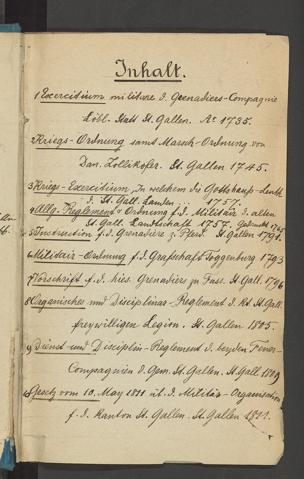 Inhalt.
1 Exercitium militare d. Grenadiers-Compagnie
Löbl. Statt St. Gallen. Ao 1735.
2 Kriegs-Ordnung samt Marsch-Ordnung von
Dan. Zollikofer. St. Gallen 1745.
3 Kriegs-Exercitium, in welchem die Gottshaus-
d. St. Gall. Landen ... 1757.
4 Allg. Reglement u. Ordnung f. d. Militär d. alten
St. Gall. Landschaft 1757. Gedruckt
5 Instruction f. d. Grenadiere z. Pferd. St. Gallen 1791.
6 Militair-Ordnung f. d. Grafschaft Toggenburg 1793
7 Vorschrift f. d. hies. Grenadiers zu Fuss. St. Gall. 1796
8 Organisches und Disciplinar-Reglement d. Kt. St. Gall.
freywilligen Legion. St. Gallen 1805.
9 Dienst- und Disciplin-Reglement d. beyden Feuer-
Compagnien d. Gem. St. Gallen. St. Gall. 1809
10 Gesetz vom 10. May 1811 üb. d. Militär-Organisation
f. d. Kanton St. Gallen. St. Gallen 1811.